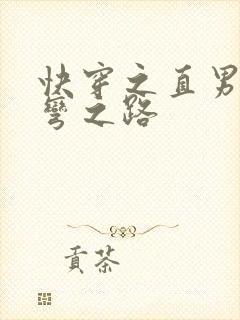 快穿之直男
弯之路
贡茶